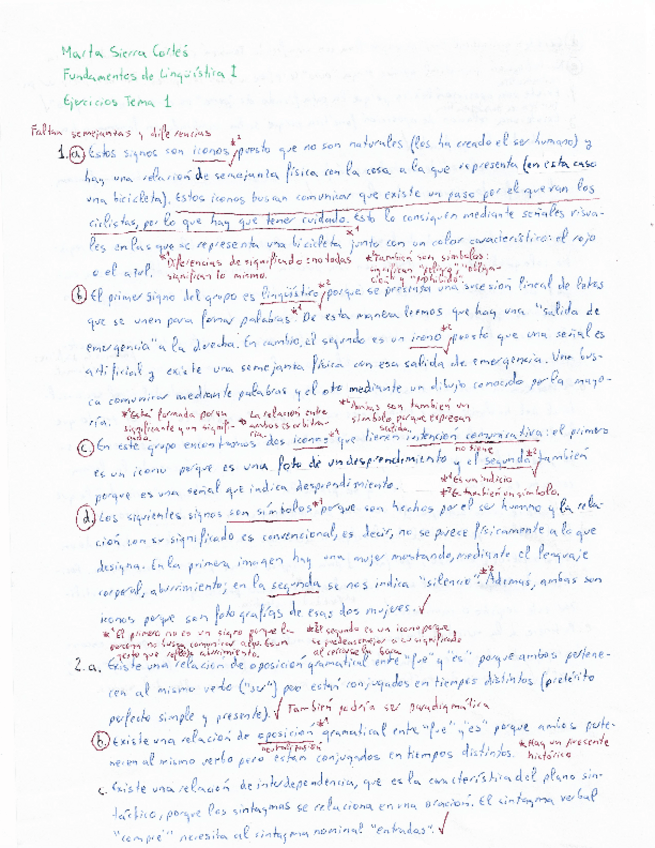 Marta Sierra Cortés
Fundamentos de Lingüística I
Ejercicios Tema 1
Faltan semejanzas y diferencias
1. a. Estos signos son iconos*² puesto que no son naturales (los ha creado el ser humano) y
hay una relación de semejanza física con la cosa a la que representa (en esta caso
una bicicleta). Estos iconos buscan comunicar que existe un paso por el que van los
ciclistas, por lo que hay que tener cuidado. Esto lo consiguen mediante señales visua-
les en las que se representa una bicicleta*¹ junto con un color característico: el rojo
o el azul.
*¹Diferencias de significado connotadas
significan lo mismo.
*²También son símbolos:
significan "peligro", "obliga-
ción" y "prohibido"
b. El primer signo del grupo es lingüístico*² porque se presenta una sucesión lineal de letras
que se unen para formar palabras*¹. De esta manera leemos que hay una "salida de
emergencia" a la derecha. En cambio, el segundo es un icono*² puesto que una señal es
artificial y existe una semejanza física con esa salida de emergencia. Uno bus-
ca comunicar mediante palabras y el otro mediante un dibujo conocido por la mayo-
ría.
*¹Está formada por un
significante y un signifi-
cado
→ La relación entre
ambos es arbitra-
ria.
*²Ambas son también un
símbolo porque expresan
salida.
c. En este grupo encontramos dos iconos*¹ que tienen intención comunicativa: el primero
no signo
es un icono porque es una foto de un desprendimiento y el segundo*² también
porque es una señal que indica desprendimiento.
*¹Es un indicio
*²Es también un símbolo.
d. Los siguientes signos son símbolos*¹ porque son hechos por el ser humano y la rela-
ción con su significado es convencional, es decir, no se parece físicamente a lo que
designa. En la primera imagen hay una mujer mostrando, mediante el lenguaje
corporal, aburrimiento; en la segunda se nos indica "silencio"*². Además, ambas son
iconos porque son fotografías de esas dos mujeres.
*¹El primero no es un signo porque la
persona no busca comunicar algo. Es un
gesto que refleja aburrimiento
*²El segundo es un icono porque
al cerrarse la boca
2. a. Existe una relación de oposición gramatical entre "fue" y "es" porque ambos pertene-
cen al mismo verbo ("ser") pero están conjugados en tiempos distintos (pretérito
perfecto simple y presente). También podría ser paradigmática
b. Existe una relación de oposición*¹ gramatical entre "fue" y "es" porque ambos perte-
neutralización
necen al mismo verbo pero están conjugados en tiempos distintos. *Hay un presente
histórico
c. Existe una relación de interdependencia, que es la característica del plano sin-
táctico, porque los sintagmas se relaciona en una oración. El sintagma verbal
"compré" necesita al sintagma nominal "entradas".